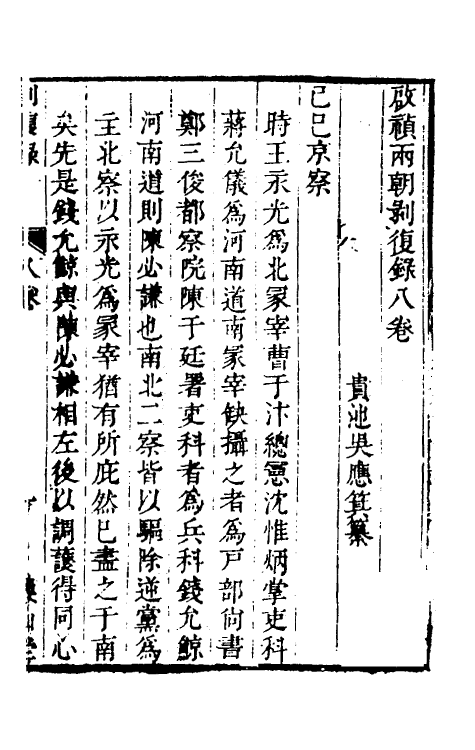 啟禎兩朝剝復錄八卷
貴池吳應箕纂
己巳京察
時王永光爲北冢宰曹于汴總憲沈惟炳掌吏科
蔣允儀爲河南道南冢宰缺攝之者爲戸部尙書
鄭三俊都察院陳于廷署吏科者爲兵科錢允鯨
河南道則陳必謙也南北二察皆以驅除逆黨爲
主北察以永光爲冢宰猶有所庇然已盡之于南
矣先是錢允鯨與陳必謙相左後以調護得同心
八卷